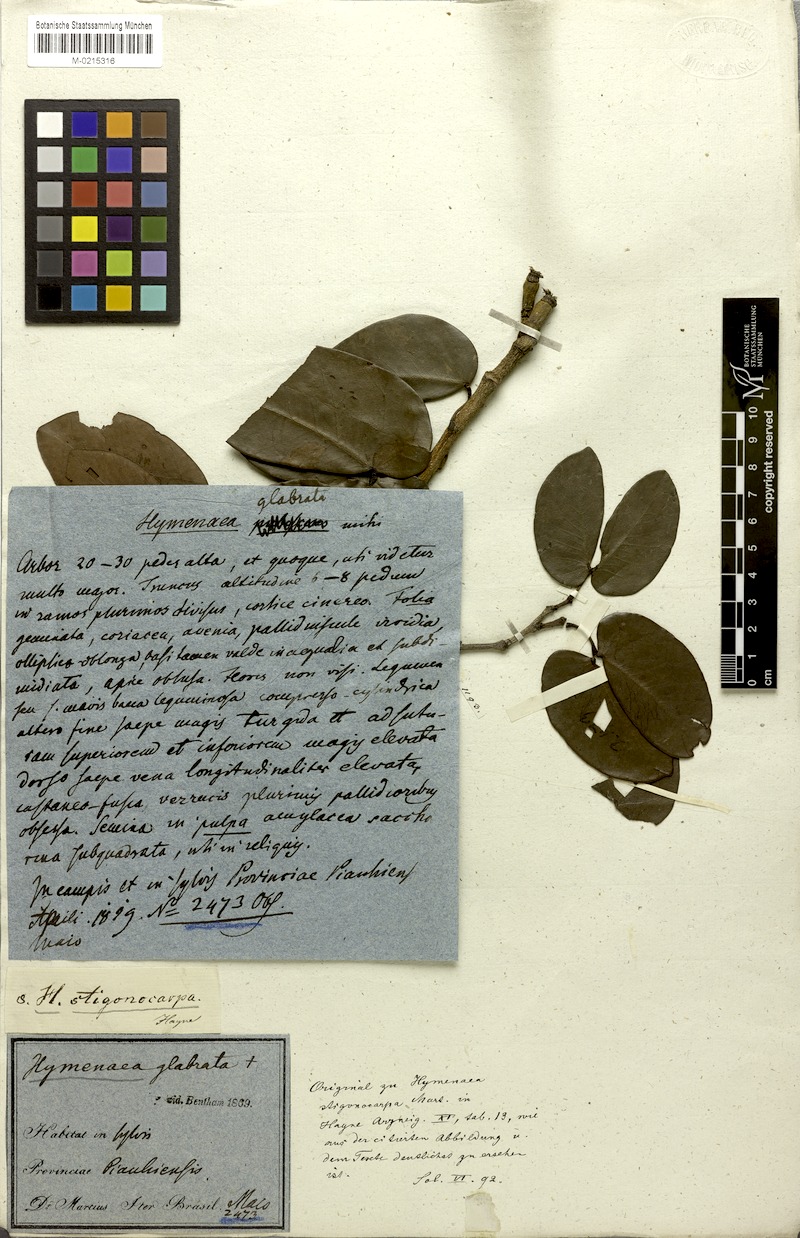 Botanische Staatssammlung München
M-0215316
BOTANISCHE
STAATSSAMMLUNG
MÜNCHEN
0 1 2 3 4 5 6 7 8 9 10
cm
copyright reserved
glabrata
Hymenaea mihi
Arbor 20-30 pedes alta, et quoque, uti videtur
multo major. Truncus altitudine 6-8 pedum
in ramos plurimos divisus, cortice cinereo. Folia
geminata, coriacea, avenia, pallid viridia,
elliptico-oblonga basi tamen valde inaequalia et subdi-
midiata, apice obtusa. Flores non visi. Legumen
seu bacca leguminosa compresso-cylindrica
altero fine saepe magis turgida et ad sutu-
ram superiorem et inferiorem magis elevata
dorso saepe vena longitudinaliter elevata,
castaneo-fusca verrucis plurimis pallidioribus
obsessa. Semina in pulpa amylacea saccha
rina subquadrata, uti in reliquis.
In campis et in sylvis Provinciae Piauhiens
Aprili. 1819. No 2473 Obs.
Maio
H. stigonocarpa.
Hayne
Hymenaea glabrata +
vid. Bentham 1869.
Habitat in sylvis
Provinciae Piauhiensis.
Dr Martius Iter Brasil. Maio
2473
Original zu Hymenaea
stigonocarpa Mart. in
Hayne Arzneig. XI, tab. 13, wie
aus der citierten Abbildung u.
dem Texte deutlichst zu ersehen
ist.
Sol. VI. 92.